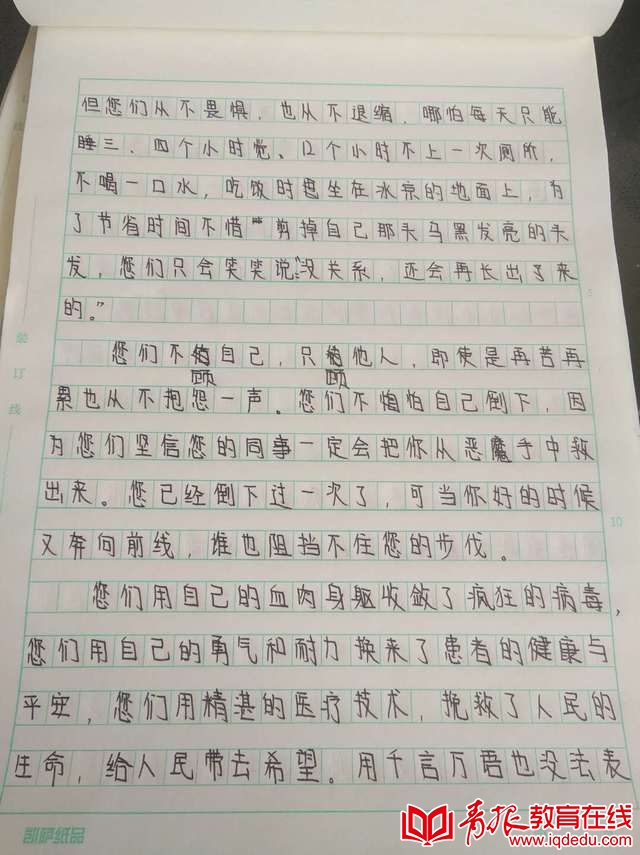 但您们从不畏惧，也从不退缩，哪怕每天只能
睡三、四个小时觉、12个小时不上一次厕所，
不喝一口水，吃饭时也坐在冰凉的地面上，为
了节省时间不惜剪掉自己那头乌黑发亮的头
发，您们只会笑笑说"没关系，还会再长出了来
的。"
您们不顾自己，只顾他人，即使是再苦再
累也从不抱怨一声。您们不怕自己倒下，因
为您们坚信您的同事一定会把你从恶魔手中救
出来。您已经倒下过一次了，可当你好的时候
又奔向前线，谁也阻挡不住您的步伐。
您们用自己的血肉身躯收敛了疯狂的病毒，
您们用自己的勇气和耐力换来了患者的健康与
平安，您们用精湛的医疗技术，挽救了人民的
生命，给人民带去希望。用千言万语也没法表
装订线
5
10
凯萨纸品
青报教育在线
www.iqdedu.com